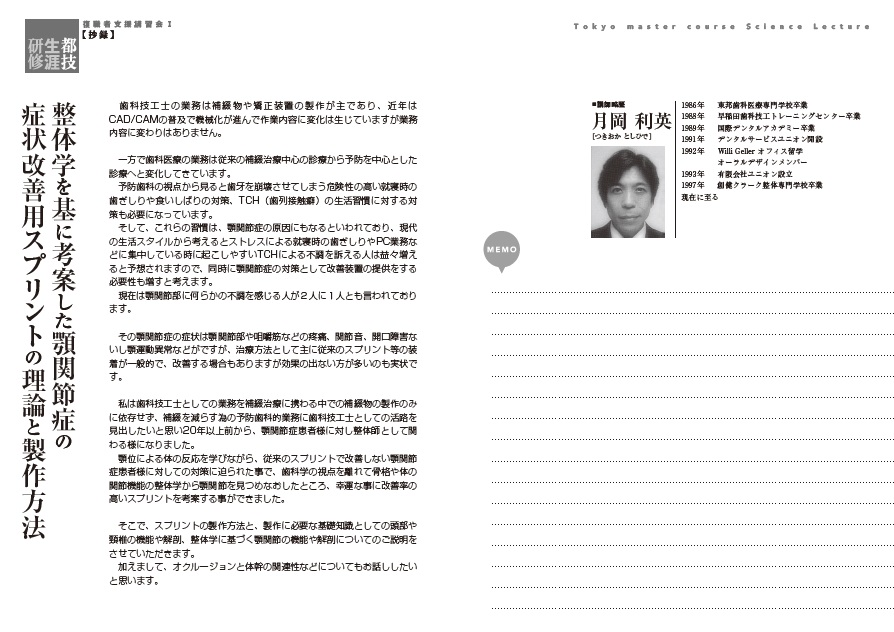 都技
生涯
研修
復職者支援講習会Ⅰ
【抄録】
Tokyo master course Science Lecture
整体学を基に考案した顎関節症の
症状改善用スプリントの理論と製作方法
歯科技工士の業務は補綴物や矯正装置の製作が主であり、近年は
CAD/CAMの普及で機械化が進んで作業内容に変化は生じていますが業務
内容に変わりはありません。
一方で歯科医療の業務は従来の補綴治療中心の診療から予防を中心とした
診療へと変化してきています。
予防歯科の視点から見ると歯牙を崩壊させてしまう危険性の高い就寝時の
歯ぎしりや食いしばりの対策、TCH（歯列接触癖）の生活習慣に対する対
策も必要になっています。
そして、これらの習慣は、顎関節症の原因にもなるといわれており、現代
の生活スタイルから考えるとストレスによる就寝時の歯ぎしりやPC業務な
どに集中している時に起こしやすいTCHによる不調を訴える人は益々増え
ると予想されますので、同時に顎関節症の対策として改善装置の提供をする
必要性も増すと考えます。
現在は顎関節部に何らかの不調を感じる人が２人に１人とも言われており
ます。
その顎関節症の症状は顎関節部や咀嚼筋などの疼痛、関節音、開口障害な
いし顎運動異常などがですが、治療方法として主に従来のスプリント等の装
着が一般的で、改善する場合もありますが効果の出ない方が多いのも実状で
す。
私は歯科技工士としての業務を補綴治療に携わる中での補綴物の製作のみ
に依存せず、補綴を減らす為の予防歯科的業務に歯科技工士としての活路を
見出したいと思い20年以上前から、顎関節症患者様に対し整体師として関
わる様になりました。
顎位による体の反応を学びながら、従来のスプリントで改善しない顎関節
症患者様に対しての対策に迫られた事で、歯科学の視点を離れて骨格や体の
関節機能の整体学から顎関節を見つめなおしたところ、幸運な事に改善率の
高いスプリントを考案する事ができました。
そこで、スプリントの製作方法と、製作に必要な基礎知識としての頭部や
頚椎の機能や解剖、整体学に基づく顎関節の機能や解剖についてのご説明を
させていただきます。
加えまして、オクルージョンと体幹の関連性などについてもお話ししたい
と思います。
■講師略歴
月岡 利英
[つきおか としひで]
1986年 東邦歯科医療専門学校卒業
1988年 早稲田歯科技工トレーニングセンター卒業
1989年 国際デンタルアカデミー卒業
1991年 デンタルサービスユニオン開設
1992年 Willi Geller オフィス留学
オーラルデザインメンバー
1993年 有限会社ユニオン設立
1997年 創健クラーク整体専門学校卒業
現在に至る
MEMO